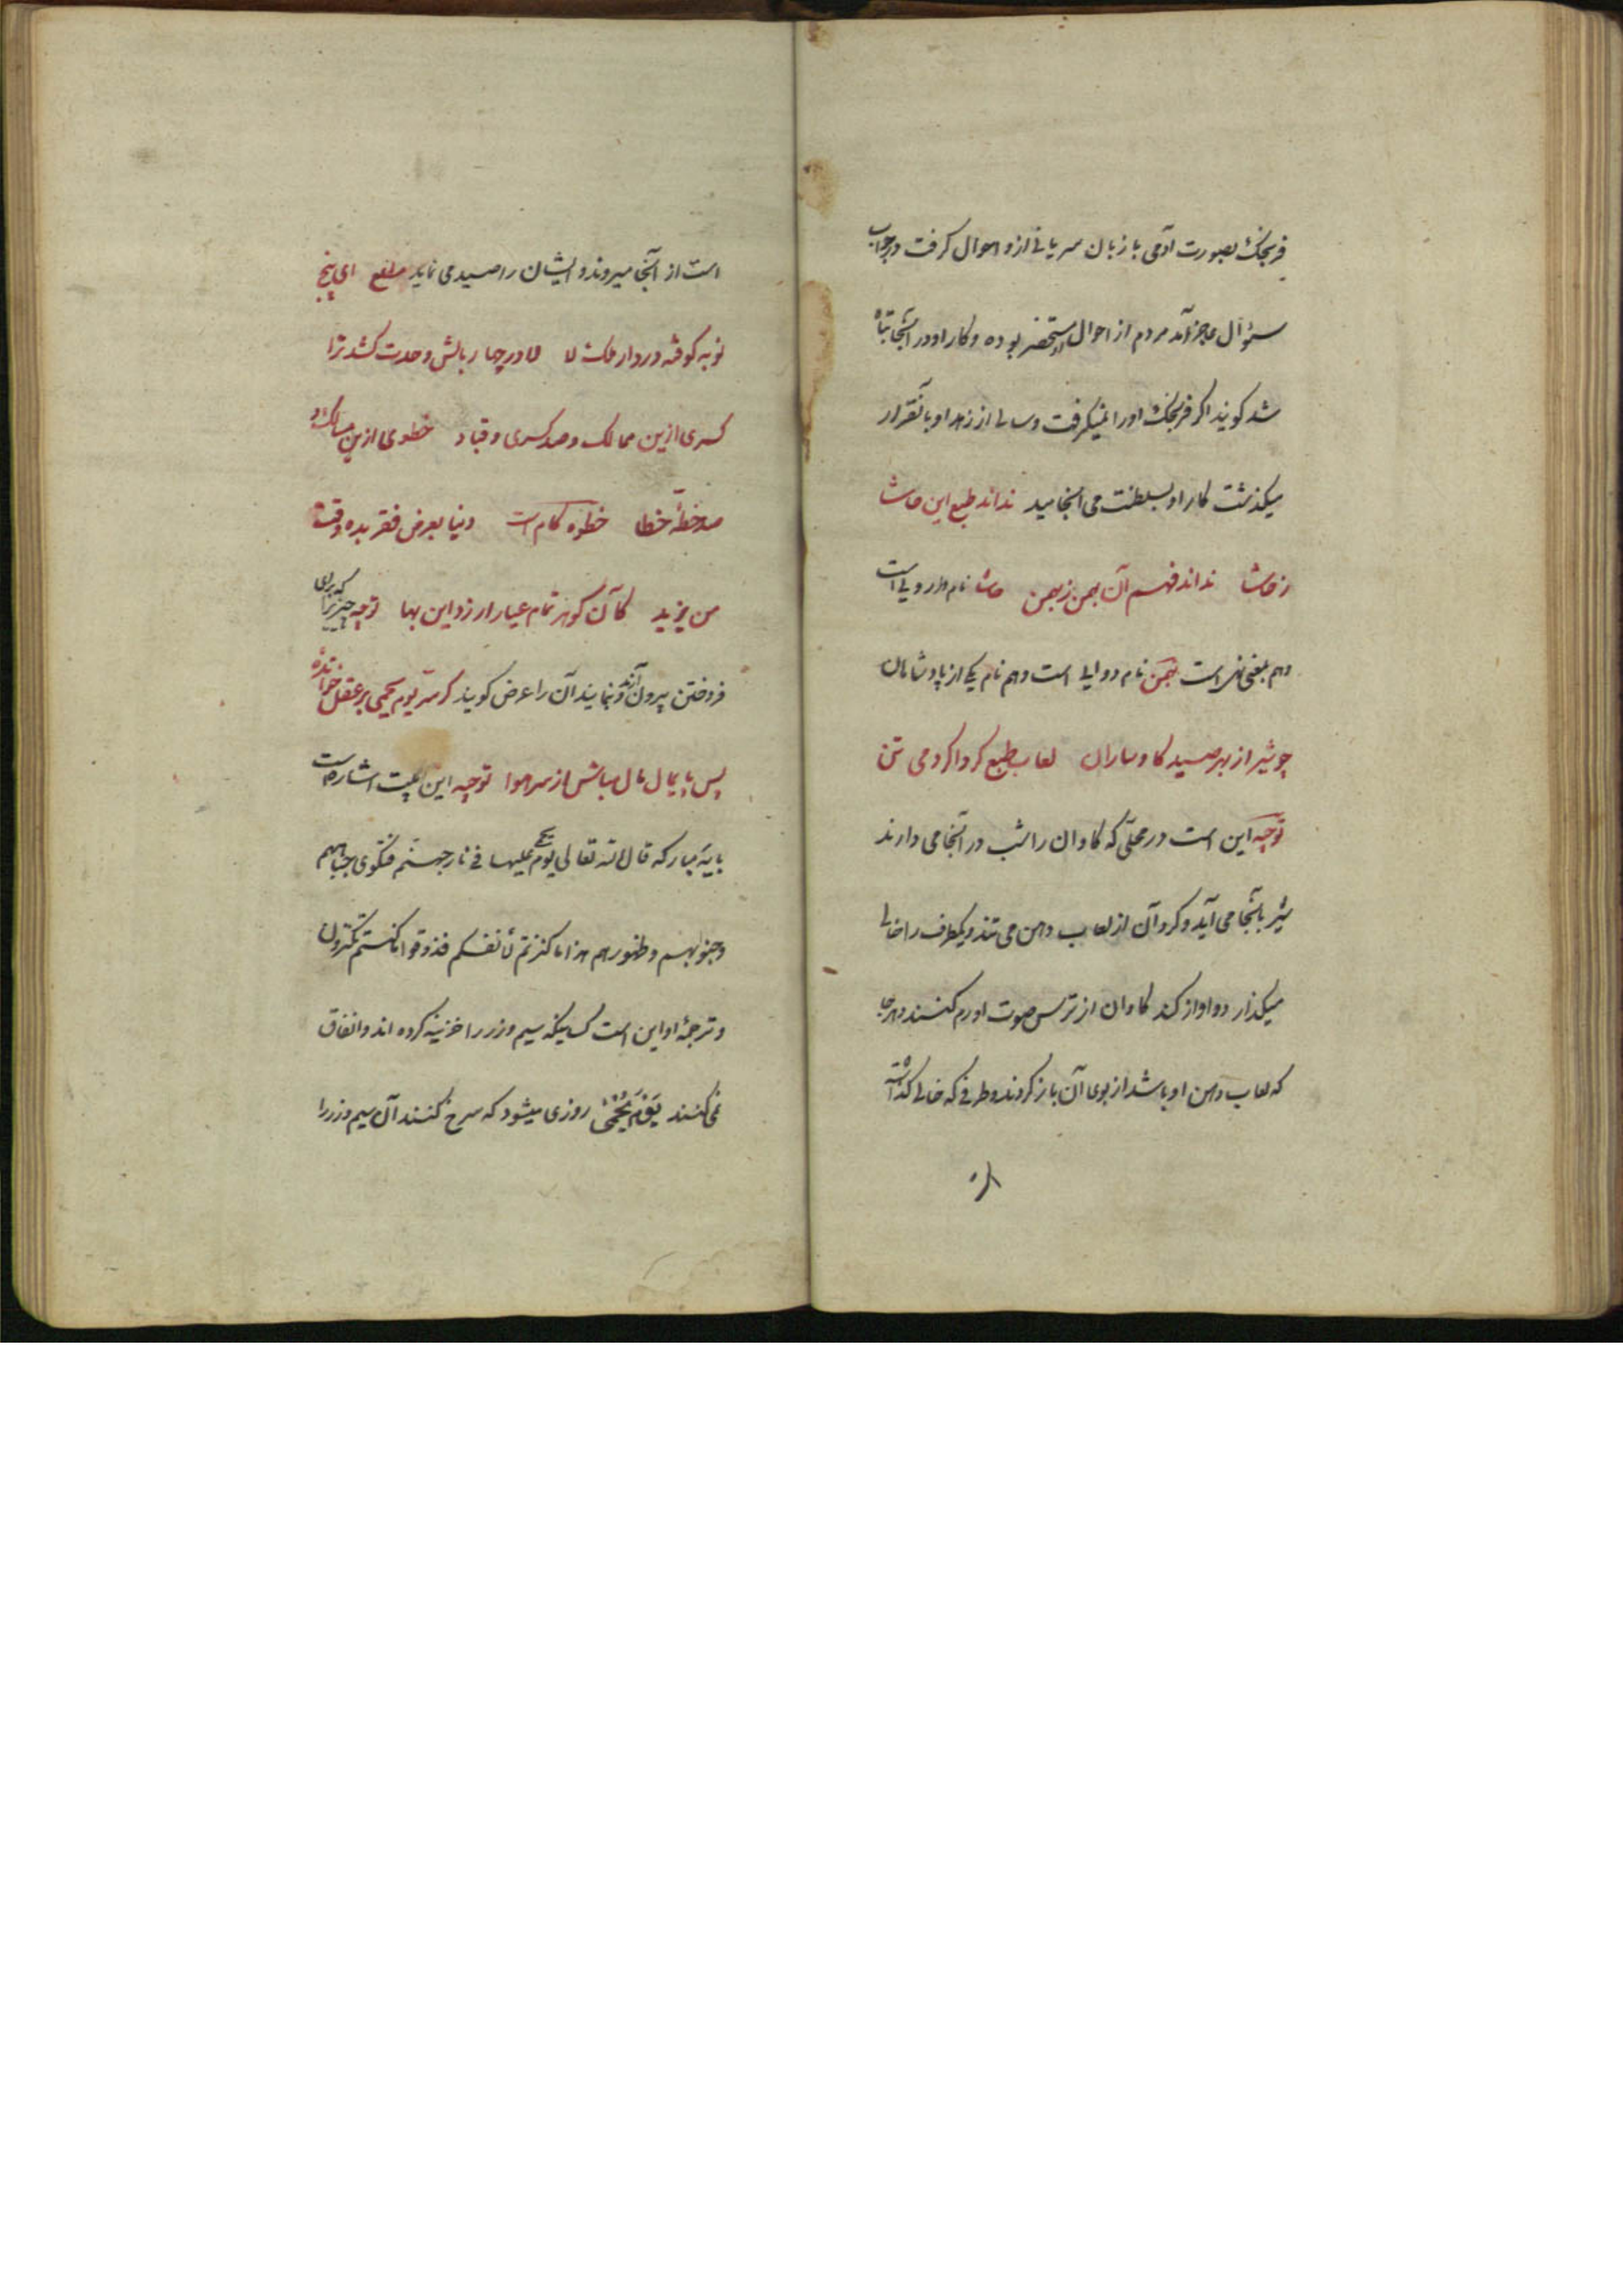 فرنجک بصورت آدمی با زبان سریانی ازو احوال گرفت در جواب
سؤال عاجز آمد مردم از احوال او مستحضر بوده و کار او در آنجا تباه
شد کویند اگر فرنجک او را نمیگرفت و سالی از زهد او بآنقرار
میکذشت کار او بسلطنت می انجامید نداند طبع این حاشا
ز حاشا نداند فهم آن بهمن ز بهمن حاشا نام داروئی است
و هم بمعنی نفی است بهمن نام دوایی است و هم نام یکی از پادشاهان
چو شیر از بهر صید کاوساران لعاب طبع کرداکرد می تن
توجیه این است در محلّی که کاوان را شب در آنجا می دارند
شیر بآنجا می آید و کرد آن از لعاب دهن می تند و یکطرف را خالی
میکذارد و اواز کند کاوان از ترس صوت او رم کنند و هر جا
که لعاب دهن او باشد از بوی آن باز کردند و طرفی که خالی کذاشته
است از آنجا میروند و ایشان را صید می نماید مطلع ای پنج
نوبه کوفته در دار ملک لا لا در چار بالش وحدت کشد ترا
کسری ازین ممالک و صد کسری و قباد خطوی ازین مسالک و
صد خطّهٔ خطا خطوه کام است دنیا بعرض فقر بده وقت
من یزید کآن کوهر تمام عیار ارزد این بها توجیه چیزیرا که برای
فروختن بیرون آرند و بنمایند آن را عرض کویند کر سرّ یوم یحمی بر عقل خوانده
پس پایمال مال مباش از سر هوا توجیه این بیت اشاره است
بآیهٔ مبارکه قال الله تعالی یوم یحمی علیها فی نار جهنّم فتکوی جباههم
و جنوبهم و ظهورهم هذا ما کنزتم لأنفسکم فذوقوا ما کنتم تکنزون
و ترجمهٔ او این است کسانیکه سیم و زر را خزینه کرده اند و انفاق
نمی کنند یَوْمَ یُحْمٰی روزی میشود که سرخ کنند آن سیم و زر را